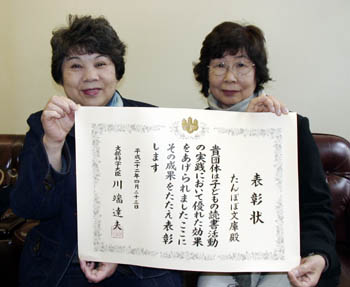 表彰状
たんぽぽ文庫殿
貴団体は子どもの読書活動
の実践において優れた効果
をあげられましたここに
その成果をたたえ表彰
します
平成二十二年四月二十三日
文部科学大臣 川端達夫